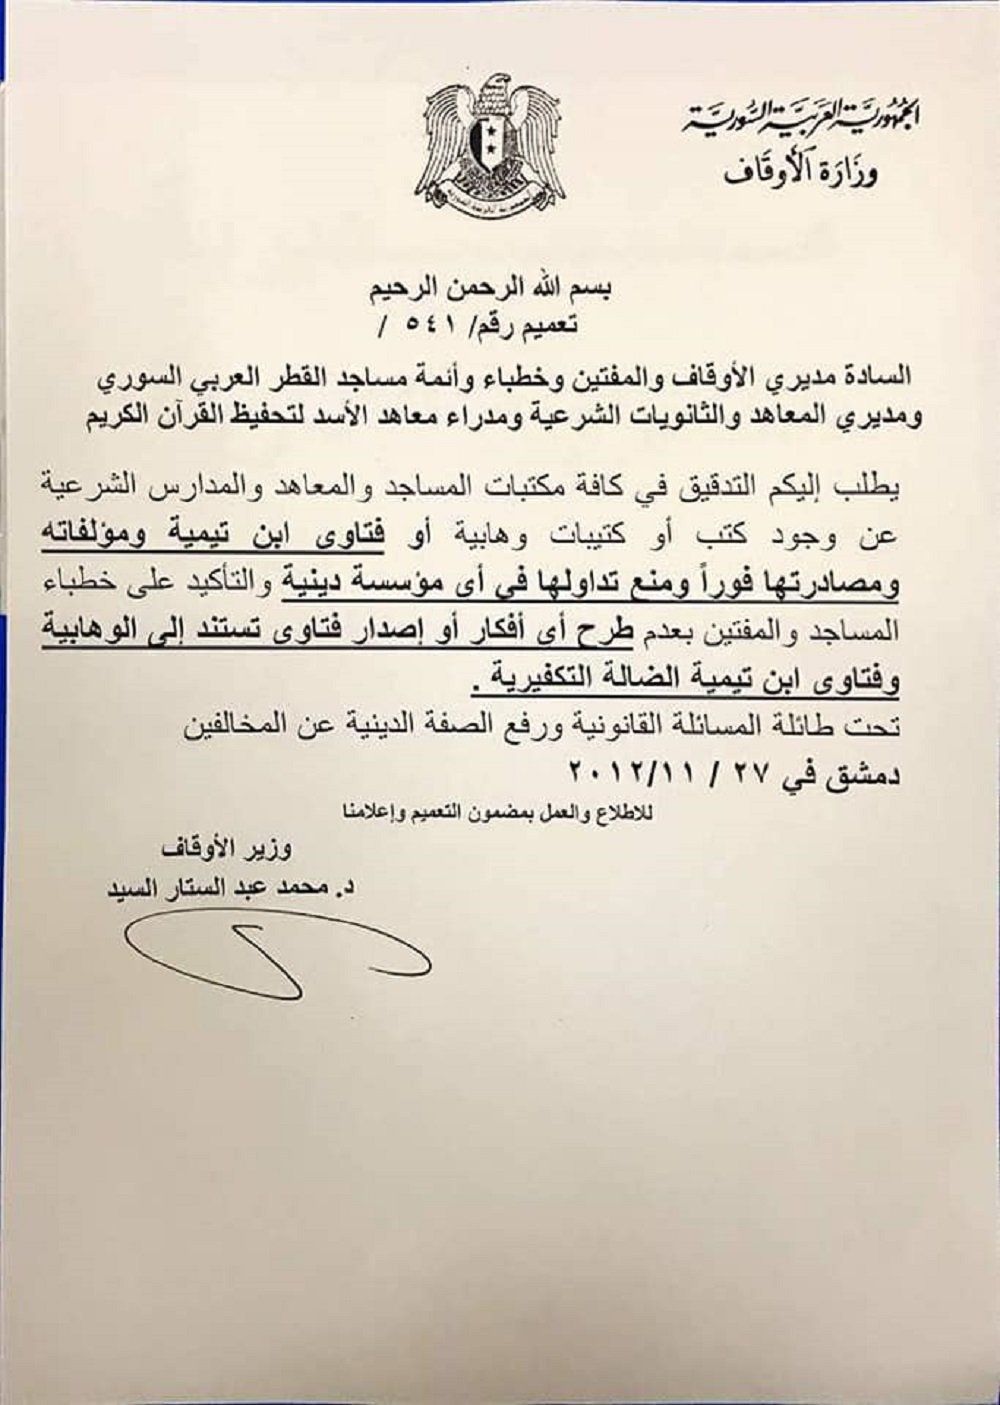 الجمهورية العربية السورية
وزارة الأوقاف
بسم الله الرحمن الرحيم
تعميم رقم/ ٥٤١ /
السادة مديري الأوقاف والمفتين وخطباء وأئمة مساجد القطر العربي السوري
ومديري المعاهد والثانويات الشرعية ومدراء معاهد الأسد لتحفيظ القرآن الكريم
يطلب إليكم التدقيق في كافة مكتبات المساجد والمعاهد والمدارس الشرعية
عن وجود كتب أو كتيبات وهابية أو فتاوى ابن تيمية ومؤلفاته
ومصادرتها فوراً ومنع تداولها في أى مؤسسة دينية والتأكيد على خطباء
المساجد والمفتين بعدم طرح أى أفكار أو إصدار فتاوى تستند إلى الوهابية
وفتاوى ابن تيمية الضالة التكفيرية .
تحت طائلة المسائلة القانونية ورفع الصفة الدينية عن المخالفين
دمشق في ٢٧ / ٢٠١٢/١١
للاطلاع والعمل بمضمون التعميم وإعلامنا
وزير الأوقاف
د. محمد عبد الستار السيد